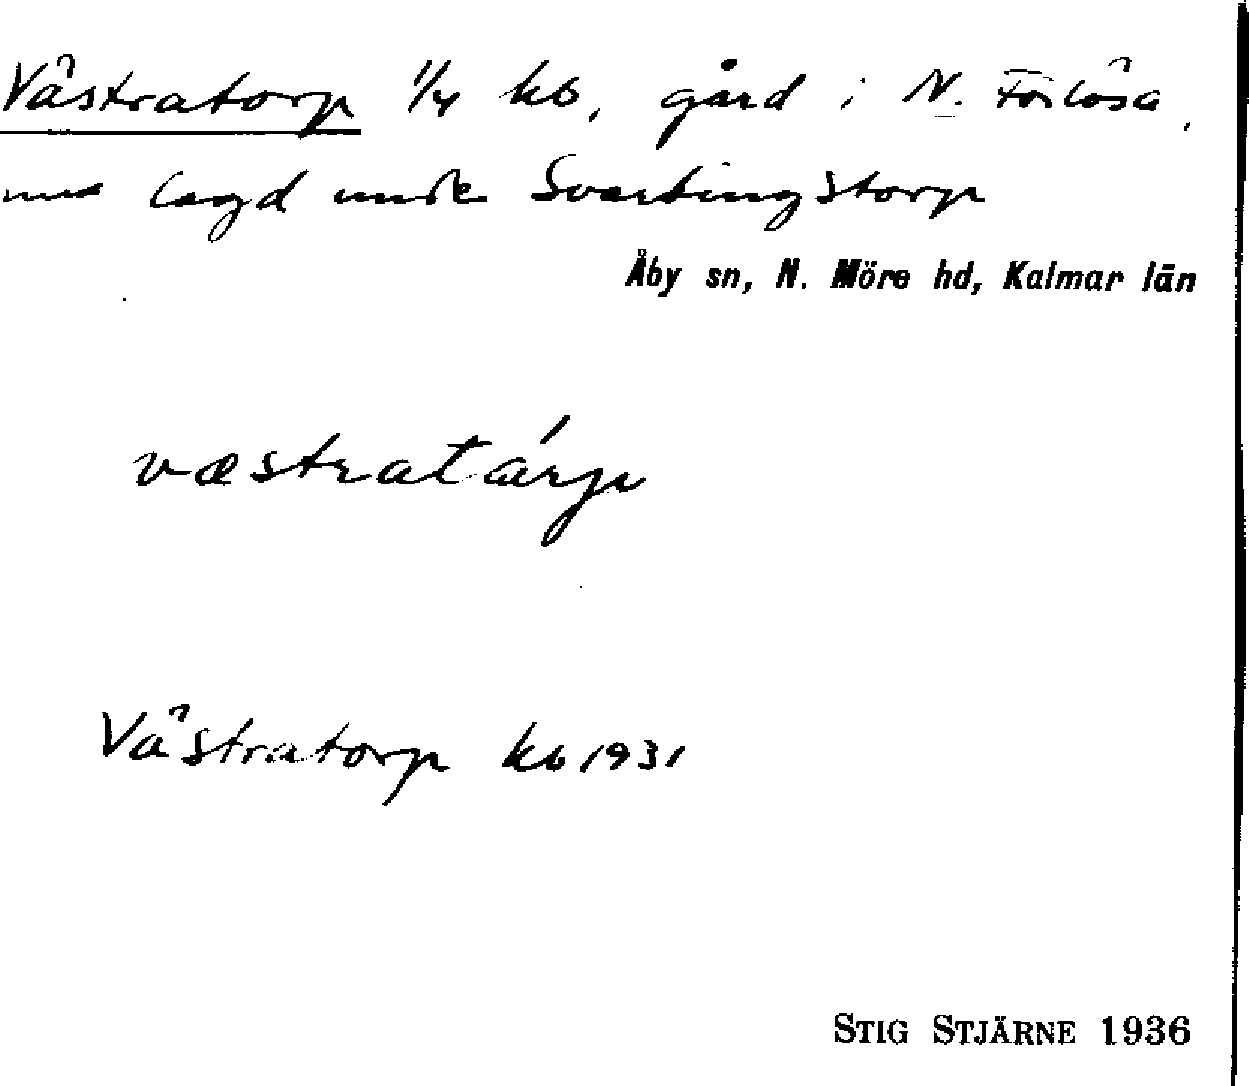 Västratorp 1/4 kb, gård i N. Förlösa,
nu lagd under Svartingstorp
Åby sn, N. Möre hd, Kalmar län
væstratárp
Västratorp kb 1931
STIG STJÄRNE 1936